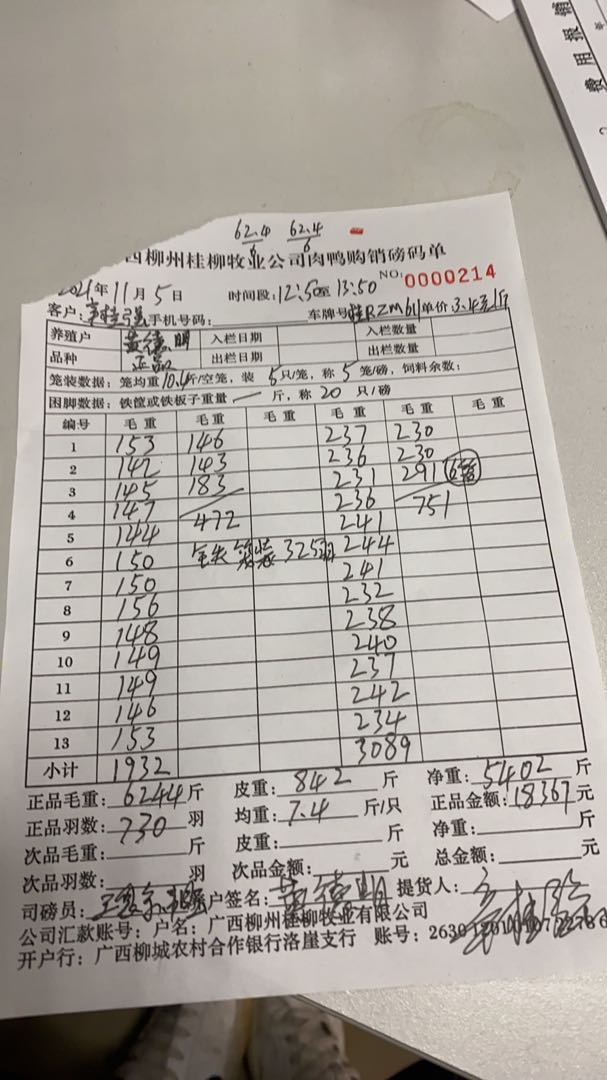 62.4 62.4
6 6
西柳州桂柳牧业公司肉鸭购销磅码单
2021年11月5日 时间段:12:50至13:50 NO: 0000214
客户: 手机号码: 车牌号桂RZM61 单价:3.4元/斤
养殖户 黄德明 入栏日期 入栏数量
品种 正品 出栏日期 出栏数量
笼装数据:笼均重10.4斤/空笼,装5只/笼,称5笼/磅,饲料余数:
困脚数据:铁筐或铁板子重量一斤,称20只/磅
编号 毛重 毛重 毛重 毛重 毛重 毛重
1 153 146 237 230
2 142 143 236 230
3 145 183 231 291 6笼
4 147 472 236 751
5 144 241
6 150 笼装325羽 244
7 150 241
8 156 232
9 148 238
10 149 240
11 149 237
12 146 242
13 153 234
小计 1932 3089
正品毛重:6244斤 皮重:842斤 净重:5402斤
正品羽数:730羽 均重:7.4斤/只 正品金额:18367元
次品毛重: 斤 皮重: 斤 净重: 斤
次品羽数: 羽 次品金额: 元 总金额: 元
司磅员: 户签名:黄德明 提货人:
公司汇款账号:户名:广西柳州桂柳牧业有限公司
开户行:广西柳城农村合作银行洛崖支行 账号:
费用报销